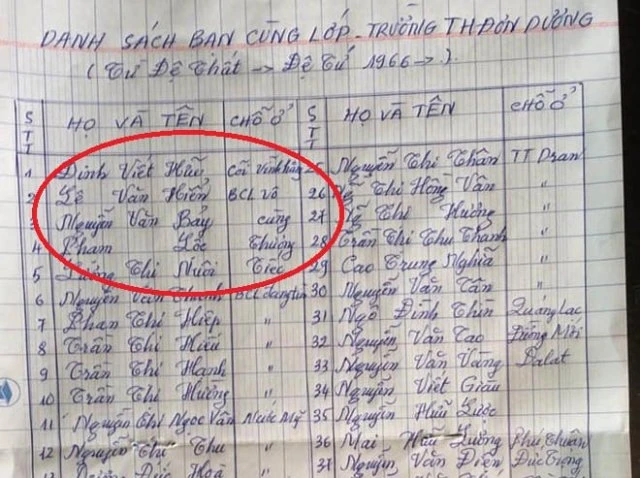 DANH SÁCH BẠN CÙNG LỚP - TRƯỜNG TH ĐƠN DƯƠNG
( Từ Đệ Thất → Đệ Tứ 1966 → ).
STT HỌ VÀ TÊN CHỖ Ở STT HỌ VÀ TÊN CHỖ Ở
1 Đinh Viết Hữu, Cõi Vĩnh hằng 25 Nguyễn Thị Thân TT Dran
2 Lê Văn Hiển BCL Vô 26 Thị Hồng Vân "
3 Nguyễn Văn Bay cùng 27 Thị Hương "
4 Phạm Lộc Thương 28 Trần Thị Thu Thanh "
5 Lương Thị Nuôi Tiếc 29 Cao Trung Nghĩa "
6 Nguyễn Văn 30 Nguyễn Văn Tân "
7 Phan Thị Hiệp " 31 Ngô Đình Thìn Quảng Lạc
8 Trần Thị Hiếu " 32 Nguyễn Văn Cao Đường Mới
9 Trần Thị Hạnh " 33 Nguyễn Văn Vàng Dalat
10 Trần Thị Hường " 34 Nguyễn Viết Giàu
11 Nguyễn Thị Ngọc Vân Nước Mỹ 35 Nguyễn Hữu Lược
12 Nguyễn Thị Thu " 36 Mai Hữu Lường Phú Thuận
Đức Hoà " 37 Nguyễn Văn Diên Đức Trọng